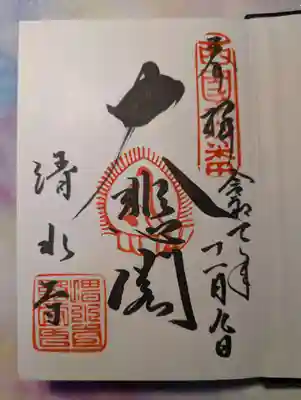 奉拝
令和 年十一月九日
大悲閣
清水寺